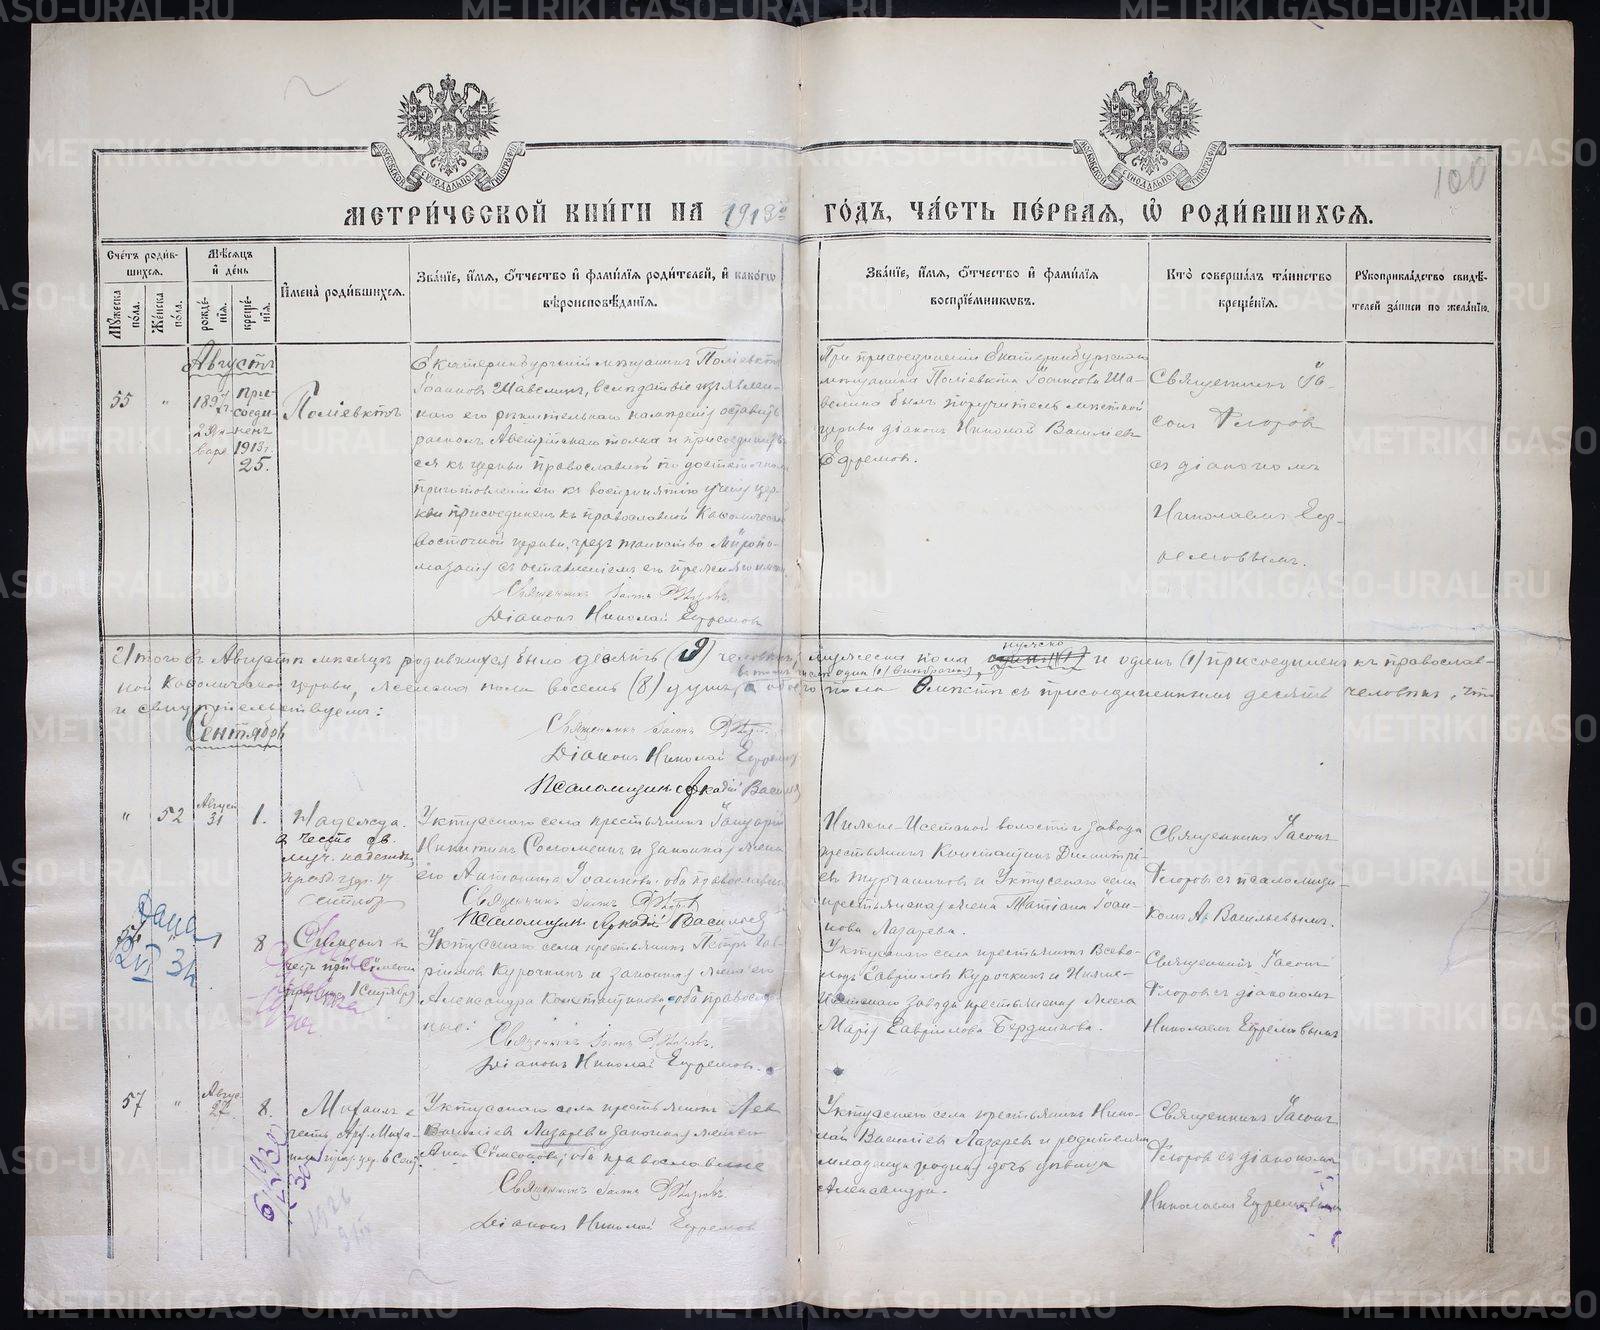 100
МОСКОВСКОЙ СѴНОДАЛЬНОЙ ТИПОГРАФІИ
МОСКОВСКОЙ СѴНОДАЛЬНОЙ ТИПОГРАФІИ
МЕТРИ́ЧЕСКОЙ КНИ́ГИ НА 1913й ГО́ДЪ, ЧА́СТЬ ПЕ́РВАЯ, Ѡ҆ РОДИ́ВШИХСЯ.
Сче́тъ роди́в-
шихся.
Му́жеска по́ла.
Же́нска по́ла.
Мѣ́сяцъ и҆ де́нь
рожде́-
нїя.
креще́-
нїя.
И҆мена̀ роди́вшихся.
Зва́нїе, и҆́мя, ѻ҆́тчество и҆ фами́лїя роди́телей, и҆ како́гѡ
вѣроисповѣ́данїя.
Зва́нїе, и҆́мя, ѻ҆́тчество и҆ фами́лїя
воспрїе́мниковъ.
Кто̀ соверша́лъ та́инство
креще́нїя.
Рꙋкоприкла́дство свидѣ́-
телей за́писи по жела́нїю.
Августъ
55
"
1897 г.
23 Ян-
варя
При-
соеди-
ненъ
1913 г.
25.
Поліевктъ
Екатеринбургскій мѣщанинъ Поліевктъ
Іоанновъ Шавелинъ, вслѣдствіе изъявлен-
наго его рѣшительнаго намѣренія оставить
расколъ Австрійскаго толка и присоединить-
ся къ церкви православной по достаточномъ
приготовленіи его къ воспріятію ученія цер-
кви присоединенъ къ православной Каѳолической
Восточной церкви, чрезъ таинство Мѵропо-
мазанія съ оставленіемъ его прежняго имени.
Священникъ Іасонъ Флоровъ.
Діаконъ Николай Ефремовъ
При присоединеніи Екатеринбургскаго
мѣщанина Поліевкта Іоаннова Ша-
велина былъ поручитель мѣстной
церкви діаконъ Николай Василіев
Ефремовъ.
Священникъ Іа-
сонъ Флоровъ
съ діакономъ
Николаемъ Еф-
ремовымъ.
Итого въ Августѣ мѣсяцѣ родившихся было девять (9) человѣкъ, мужеска пола и одинъ (1) присоединенъ къ православ-
ной Каѳолической церкви, женска пола восемь (8) душъ, а обоего пола вмѣстѣ съ присоединеннымъ десять человѣкъ, что
и свидѣтельствуемъ:
Священникъ Іасонъ Флоровъ.
Діаконъ Николай Ефремовъ
Псаломщикъ Аркадій Васильевъ
Сентябрь
"
52
Август
31
1.
Надежда.
в честь св.
муч. надежды,
празд. цер. 17
сентября
Уктусскаго села крестьянинъ
Никитинъ Соломеинъ и законная жена
его Антонина Іоаннова, оба православные
Священникъ Іасонъ Флоровъ
Псаломщикъ Аркадій Васильевъ
Нижне-Исетской волости и завода
крестьянинъ Константинъ Димитрі-
евъ Турчаниновъ и Уктусскаго села
крестьянская жена Татіана Іоан-
нова Лазарева.
Священникъ Іасонъ
Флоровъ съ псаломщи-
комъ Ар. Васильевымъ.
56
"
1
8
Симеонъ въ
честь прп. Сѵмеона
Уктусскаго села крестьянинъ Петръ Гав-
ріиловъ Курочкинъ и законная жена его
Александра Константинова, оба православ-
ные:
Священникъ Іасонъ Флоровъ.
Діаконъ Николай Ефремовъ.
Уктусскаго села крестьянинъ Всево-
лодъ Гавріиловъ Курочкинъ и Нижне-
Исетскаго завода крестьянская жена
Марія Гавріилова Бердникова.
Священникъ Іасонъ
Флоровъ съ діакономъ
Николаемъ Ефремовымъ
57
"
Авгус.
27
8.
Михаилъ в
честь Арх. Миха-
ила праз. цер. 6 Сент.
Уктусскаго села крестьянинъ Левъ
Василіевъ Лазаревъ и законная жена его
Анна Сѵмеонова, оба православные
Священникъ Іасонъ Флоровъ.
Діаконъ Николай Ефремовъ
Уктусскаго села крестьянинъ Нико-
лай Василіевъ Лазаревъ и родителей
младенца родная дочь дѣвица
Александра.
Священникъ Іасонъ
Флоровъ съ діакономъ
Николаемъ Ефремовымъ
METRIKI.GASO-URAL.RU